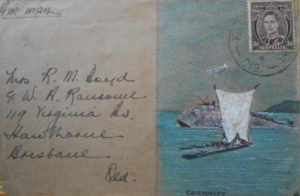 AIR MAIL
Mrs R. M. Boyd
C/ W. A. Ransome
119 Virginia Av.
Hawthorne
Brisbane
Qld.
AUSTRALIA